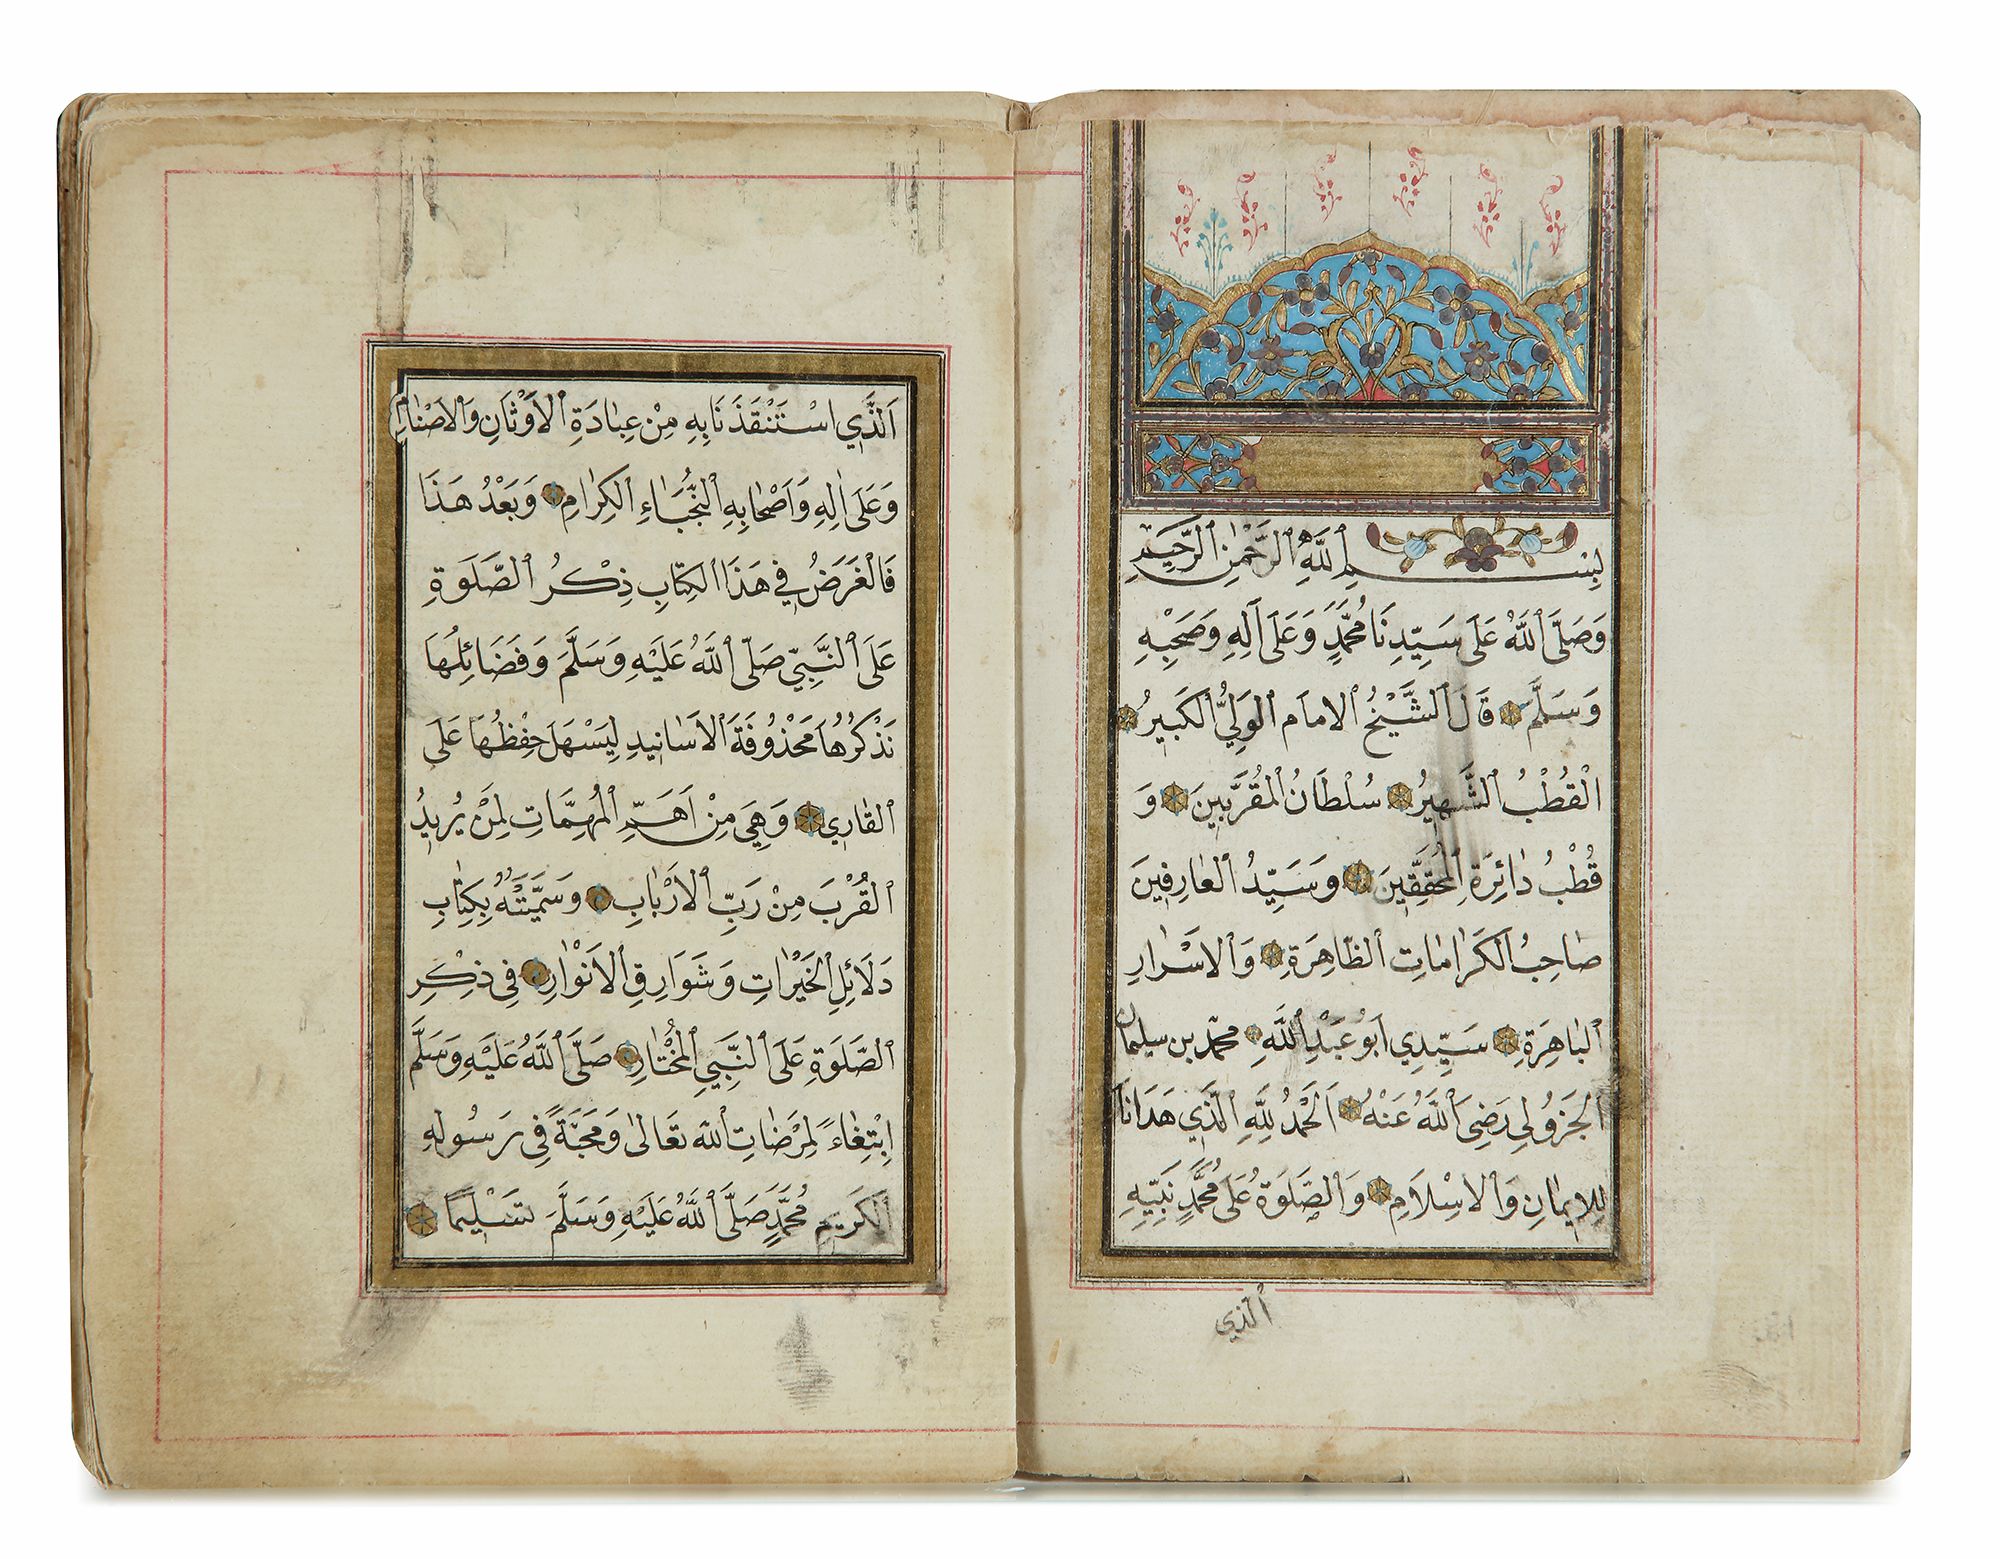 بِسْمِ ٱللَّهِ ٱلرَّحْمٰنِ ٱلرَّحِيمِ
وَصَلَّى ٱللَّهُ عَلَى سَيِّدِنَا مُحَمَّدٍ وَعَلَى آلِهِ وَصَحْبِهِ
وَسَلَّمَ قَالَ ٱلشَّيْخُ ٱلاِمَام ٱلوَلِيُّ ٱلكَبِيرُ
ٱلْقُطْبُ ٱلشَّهِيرُ سُلْطَانُ ٱلمُقَرَّبِينَ وَ
قُطْبُ دٰائِرَةِ ٱلمُحَقِّقِينَ وَسَيِّدُ ٱلعَارِفِينَ
صٰاحِبُ ٱلكَرٰامٰاتِ ٱلظّٰاهِرَةِ وَٱلاَسْرٰارِ
ٱلبٰاهِرَةِ سَيِّدِي اَبُو عَبْدِ ٱللَّهِ مُحَمَّد بن سليمان
ٱلجَزُولِى رَضِىَ ٱللَّهُ عَنْهُ اَلْحَمْدُ لِلَّهِ ٱلَّذِي هَدَانَا
لِلاِيمٰانِ وَٱلاِسْلاَمِ وَٱلصَّلَوةُ عَلَى مُحَمَّدٍ نَبِيِّهِ
ٱلذي
اَلَّذِي اسْتَنْقَذَنَا بِهِ مِنْ عِبٰادَةِ ٱلاَوْثَانِ وَٱلاَصْنٰامِ
وَعَلَى اٰلِهِ وَاَصْحٰابِهِ ٱلنُّجَبَاءِ ٱلكِرٰامِ وَبَعْدُ هَذَا
فَالْغَرَضُ فِي هَذَا ٱلكِتٰابِ ذِكْرُ ٱلصَّلَوةِ
عَلَى ٱلنَّبِيِّ صَلَّى ٱللَّهُ عَلَيْهِ وَسَلَّمَ وَفَضَائِلُهَا
نَذْكُرُهَا مَحْذُوفَةَ ٱلاَسَانِيدِ لِيَسْهَلَ حِفْظُهَا عَلَى
ٱلقٰارِي وَهِيَ مِنْ اَهَمِّ ٱلمُهِمَّاتِ لِمَنْ يُرِيدُ
ٱلقُرْبَ مِنْ رَبِّ ٱلاَرْبٰابِ وَسَمَّيْتُهُ بِكِتٰابِ
دَلاَئِلِ ٱلخَيْرٰاتِ وَشَوَارِقِ ٱلاَنْوٰارِ فِي ذِكْرِ
ٱلصَّلَوةِ عَلَى ٱلنَّبِيِّ ٱلمُخْتٰارِ صَلَّى ٱللَّهُ عَلَيْهِ وَسَلَّمَ
اِبْتِغٰاءً لِمَرْضٰاتِ ٱللّٰه تَعَالىٰ وَمَحَبَّةً فِي رَسُولِهِ
ٱلكَرِيمِ مُحَمَّدٍ صَلَّى ٱللَّهُ عَلَيْهِ وَسَلَّمَ تَسْلِيمًا